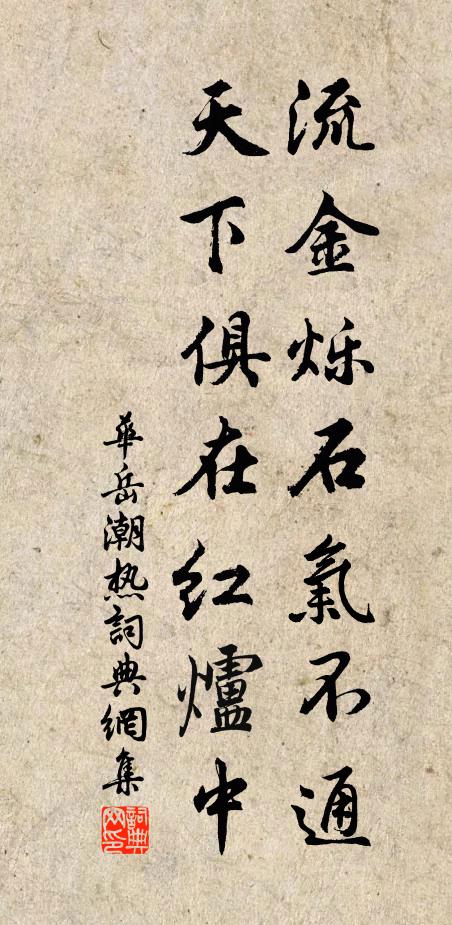 流金烁石氣不通
天下俱在红爐中
華岳潮热詞典網集
詞典网印